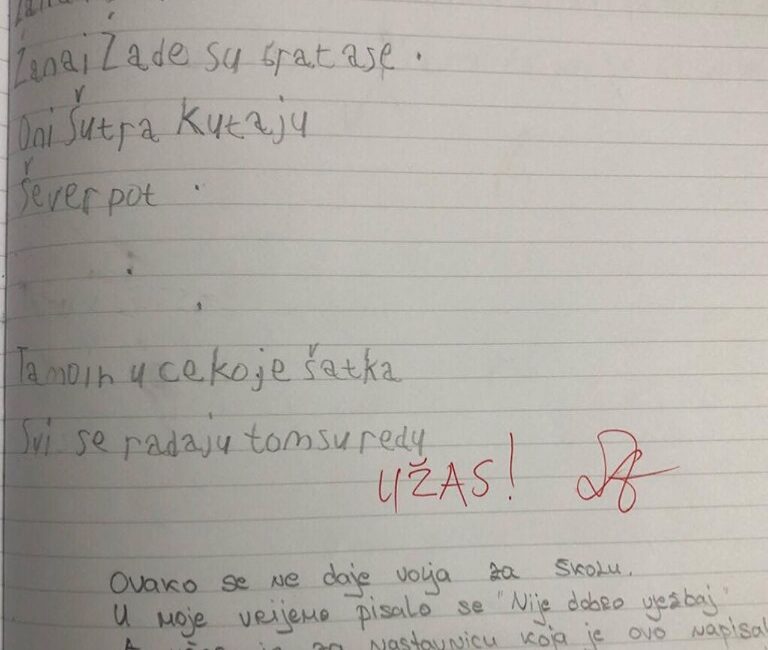 Žanaj Žade su bratase.
Oni Šutra Kutaju
Šever pot.
Tamoih u cekoje šatka
Svi se radaju tomsu redu
UŽAS!
Ovako se ne daje volja za školu.
U moje vrijeme pisalo se "Nije dobro vježbaj"
za nastavnicu koja je ovo napisal